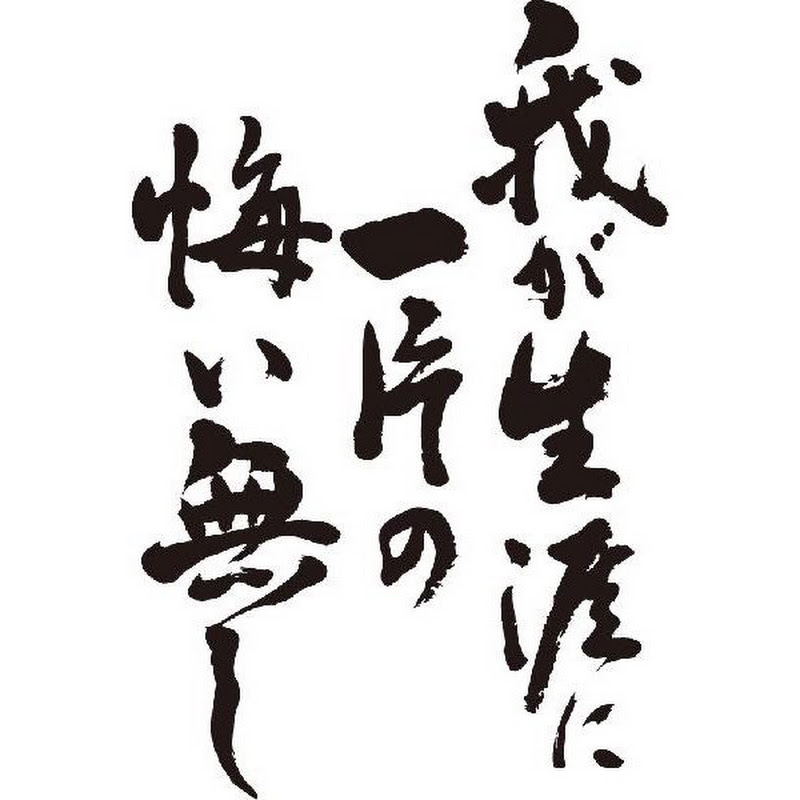 我が生涯に
一片の
悔い無し